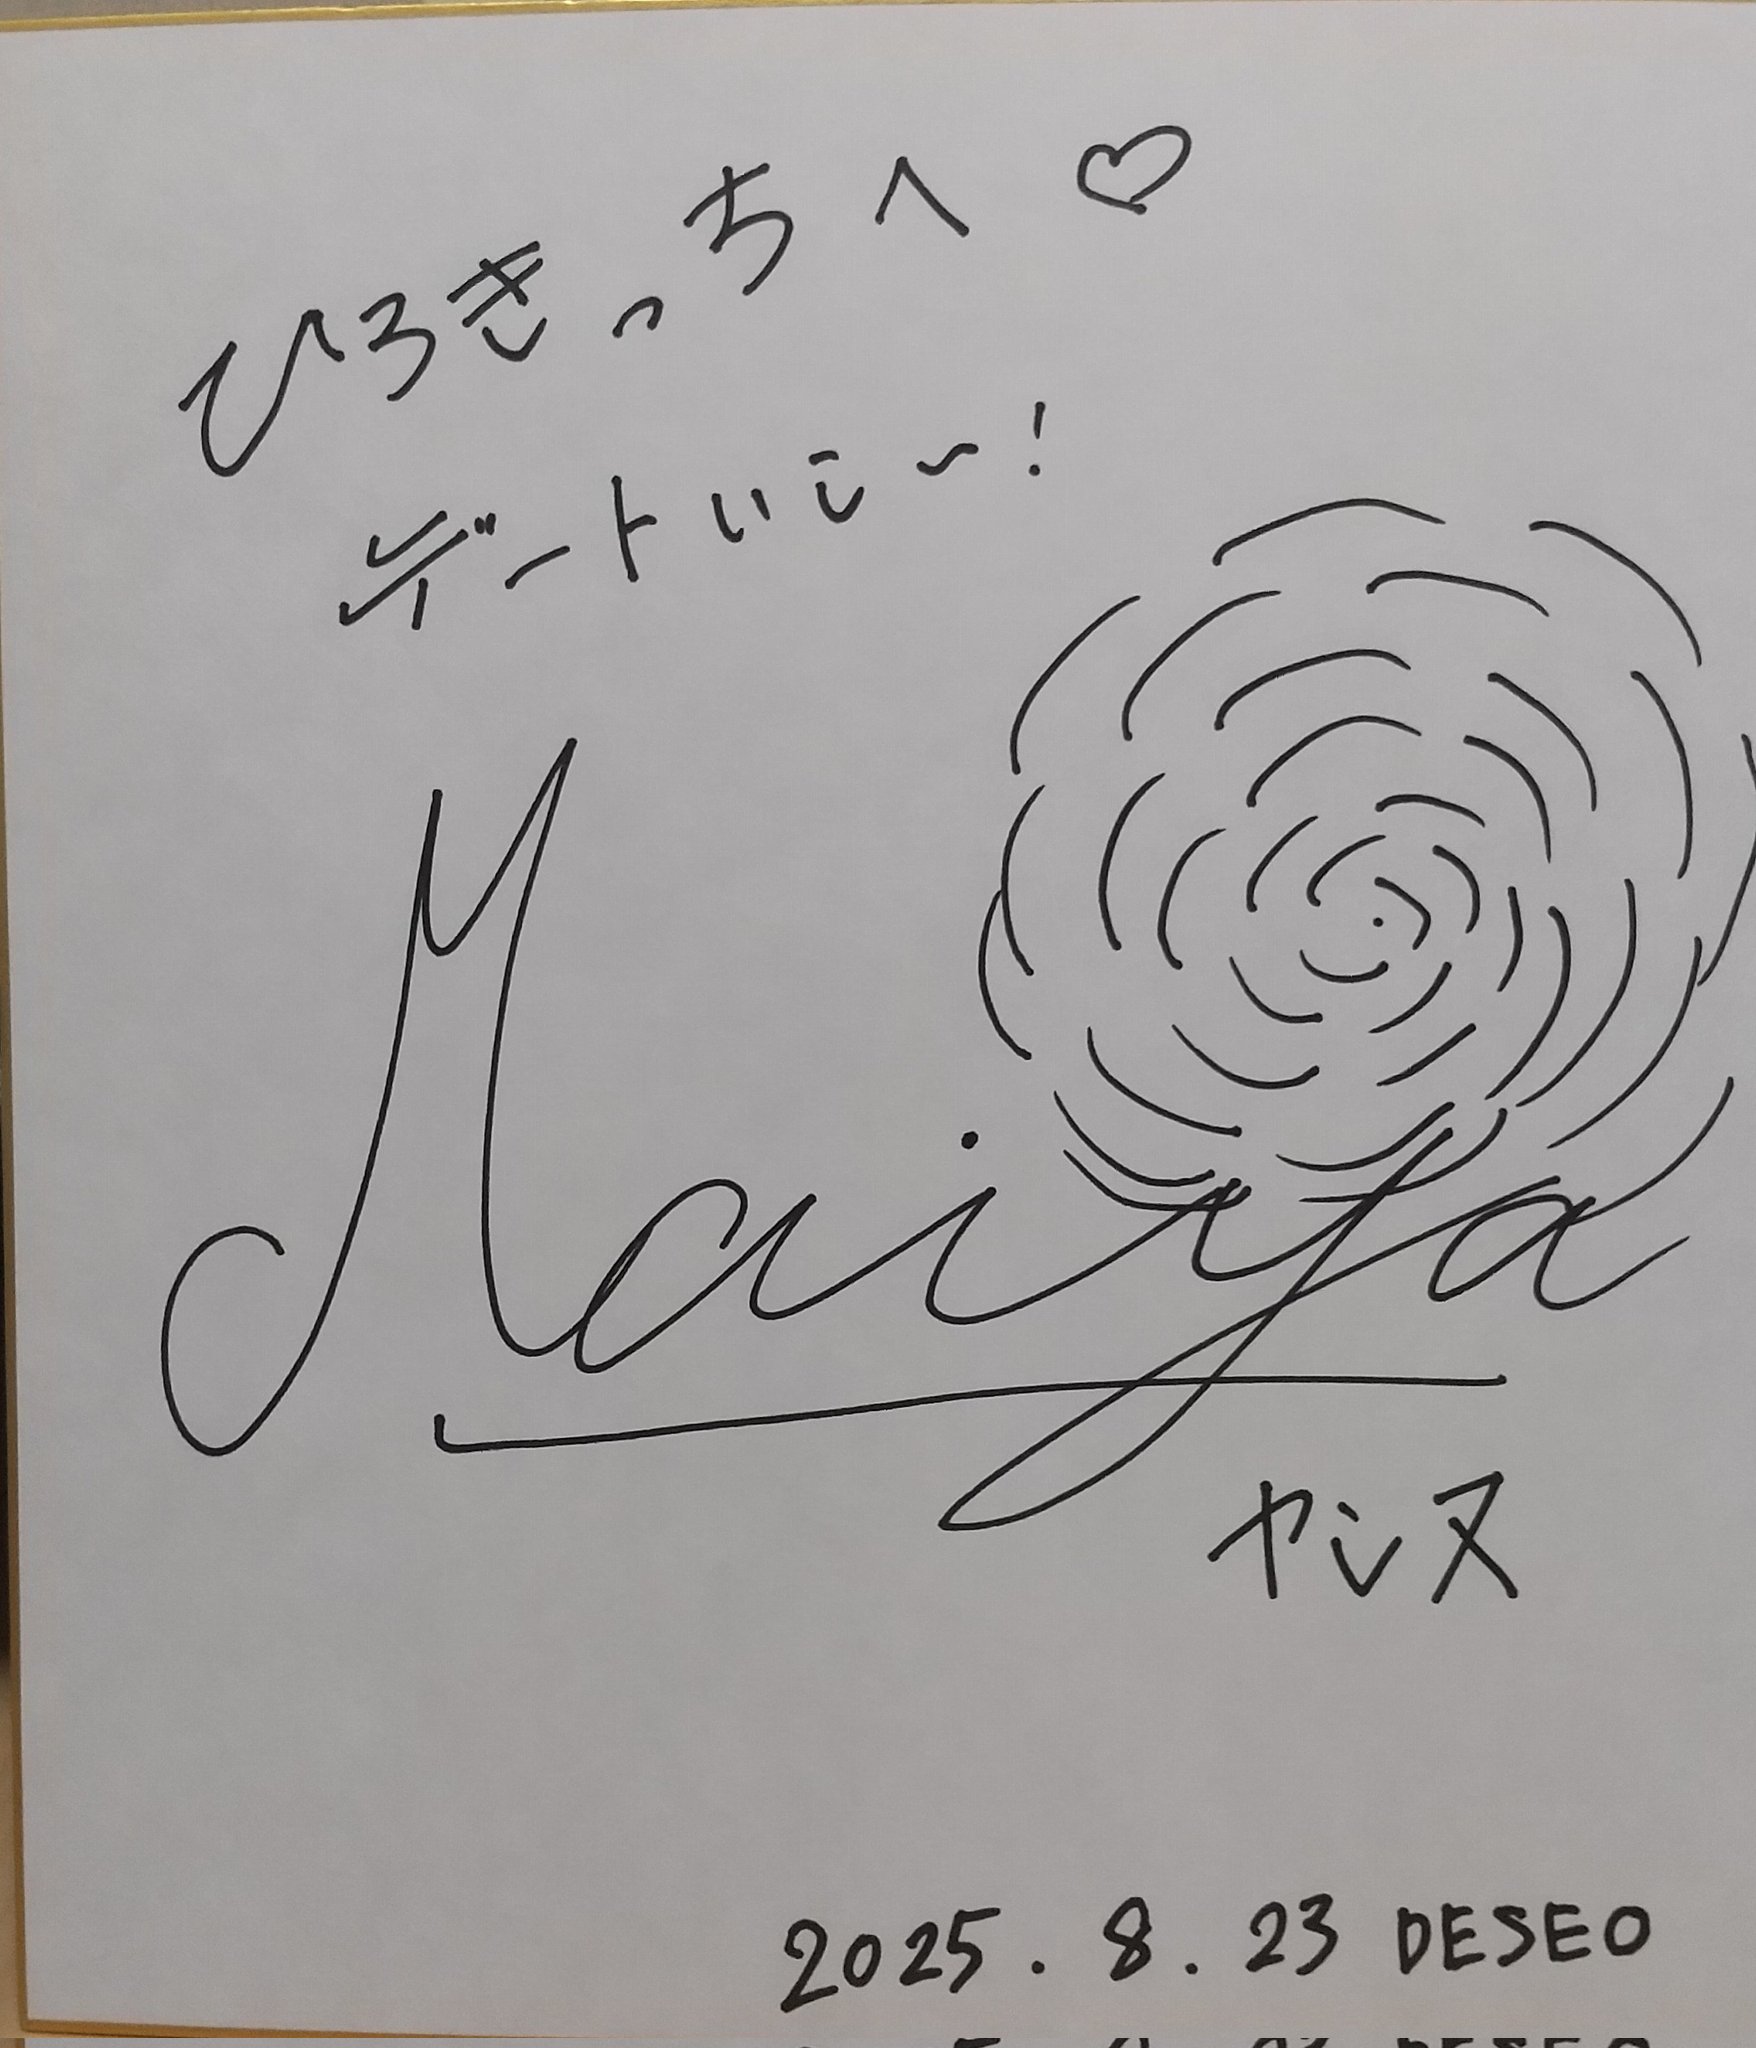 ひろきっちへ♡
デートいこ〜!
Maiya
ヤシヌ
2025.8.23 DESEO